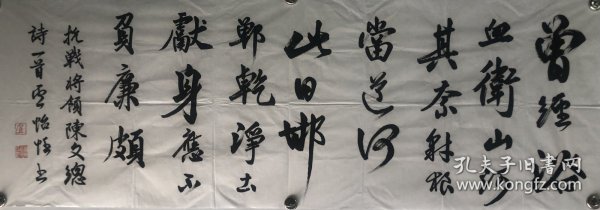 曾經瀝
血衛山河
其奈豺狼
當道何
此日邯
鄲乾淨土
獻身應不
負廉頗
抗戰将領陳文總
詩一首 怡書
孔夫子旧书网
www.kongfz.com